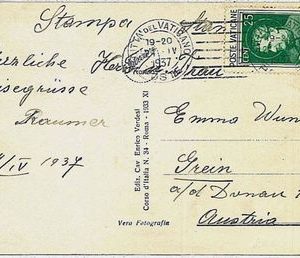 Stampa
Herzliche
Reisegrüsse
IV 1937
CITTÀ DEL VATICANO
19-20
IV
1937
POSTE VATICANE
CENT 25
Frau
Emma Wun
Grein
a/d Donau
Austria
Ediz. Cav Enrico Verdesi
Corso d'Italia N. 34 - Roma - 1933 XI
Vera Fotografia